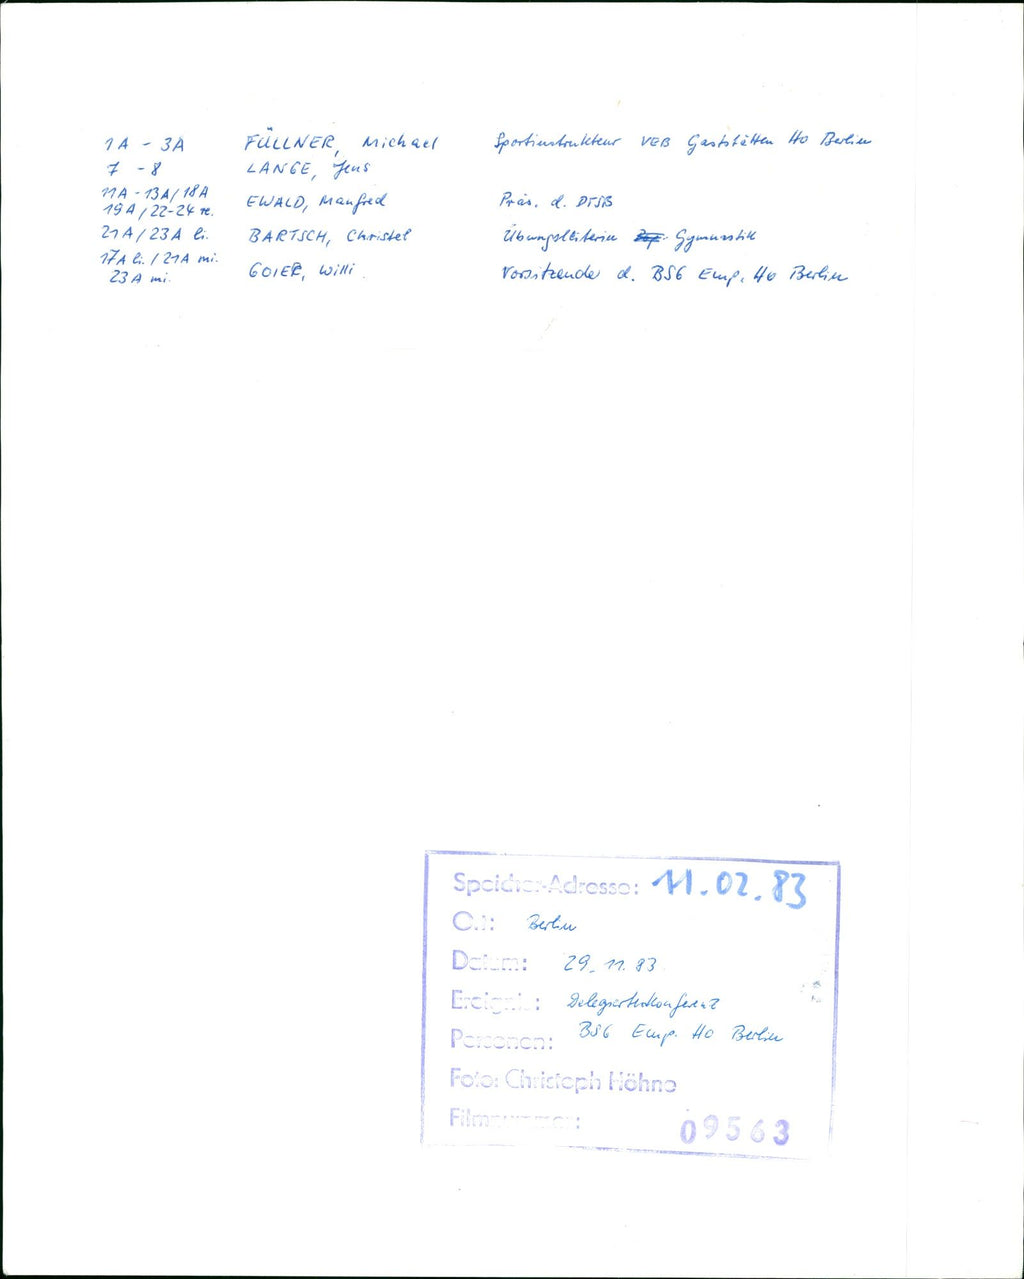 1A - 3A FÜLLNER, Michael Sportinstrukteur VEB Gaststätten HO Berlin
7 - 8 LANGE, Jens
11A - 13A / 18A
19A / 22-24 re. EWALD, Manfred Präs. d. DTSB
21A / 23A li. BARTSCH, Christel Übungsleiterin Gymnastik
17A li. / 21A mi.
23A mi. GOIER, Willi Vorsitzender d. BSG Emp. HO Berlin
Speicher-Adresse: 11.02.83
Ort: Berlin
Datum: 29.11.83
Ereignis: Delegiertenkonferenz
Personen: BSG Emp. HO Berlin
Foto: Christoph Höhne
Filmnummer: 09563